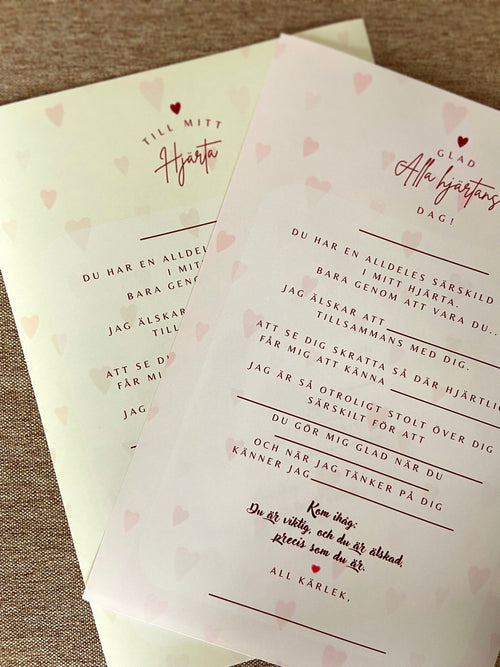 TILL MITT
Hjärta
DU HAR EN ALLDEL
I MIT
BARA GENO
JAG ÄLSKAR
TILL
ATT SE D
FÅR MI
JAG
GLAD
Alla hjärtans
DAG!
DU HAR EN ALLDELES SÄRSKILD
I MITT HJÄRTA.
BARA GENOM ATT VARA DU...
JAG ÄLSKAR ATT
TILLSAMMANS MED DIG.
ATT SE DIG SKRATTA SÅ DÄR HJÄRTLIG
FÅR MIG ATT KÄNNA
JAG ÄR SÅ OTROLIGT STOLT ÖVER DIG
SÄRSKILT FÖR ATT
DU GÖR MIG GLAD NÄR DU
OCH NÄR JAG TÄNKER PÅ DIG
KÄNNER JAG
Kom ihåg:
Du är viktig, och du är älskad,
precis som du är.
ALL KÄRLEK,